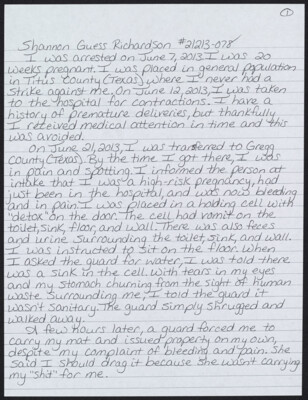 1
Shannon Guess Richardson #21213-078
I was arrested on June 7, 2013. I was 20
weeks pregnant. I was placed in general population
in Titus County (Texas), where I never had a
strike against me. On June 12, 2013, I was taken
to the hospital for contractions. I have a
history of premature deliveries, but thankfully
I received medical attention in time and this
was avoided.
On June 21, 2013, I was transferred to Gregg
County (Texas). By the time I got there, I was
in pain and spotting. I informed the person at
intake that I was a high-risk pregnancy, had
just been in the hospital, and was now bleeding
and in pain. I was placed in a holding cell with
"detox" on the door. The cell had vomit on the
toilet, sink, floor, and wall. There was also feces
and urine surrounding the toilet, sink, and wall.
I was instructed to sit on the floor. When
I asked the guard for water, I was told there
was a sink in the cell. With tears in my eyes
and my stomach churning from the sight of human
waste surrounding me, I told the guard it
wasn't sanitary. The guard simply shrugged and
walked away.
A few hours later, a guard forced me to
carry my mat and issued property on my own,
despite my complaint of bleeding and pain. She
said I should drag it because she wasn't carrying
my "shit" for me.